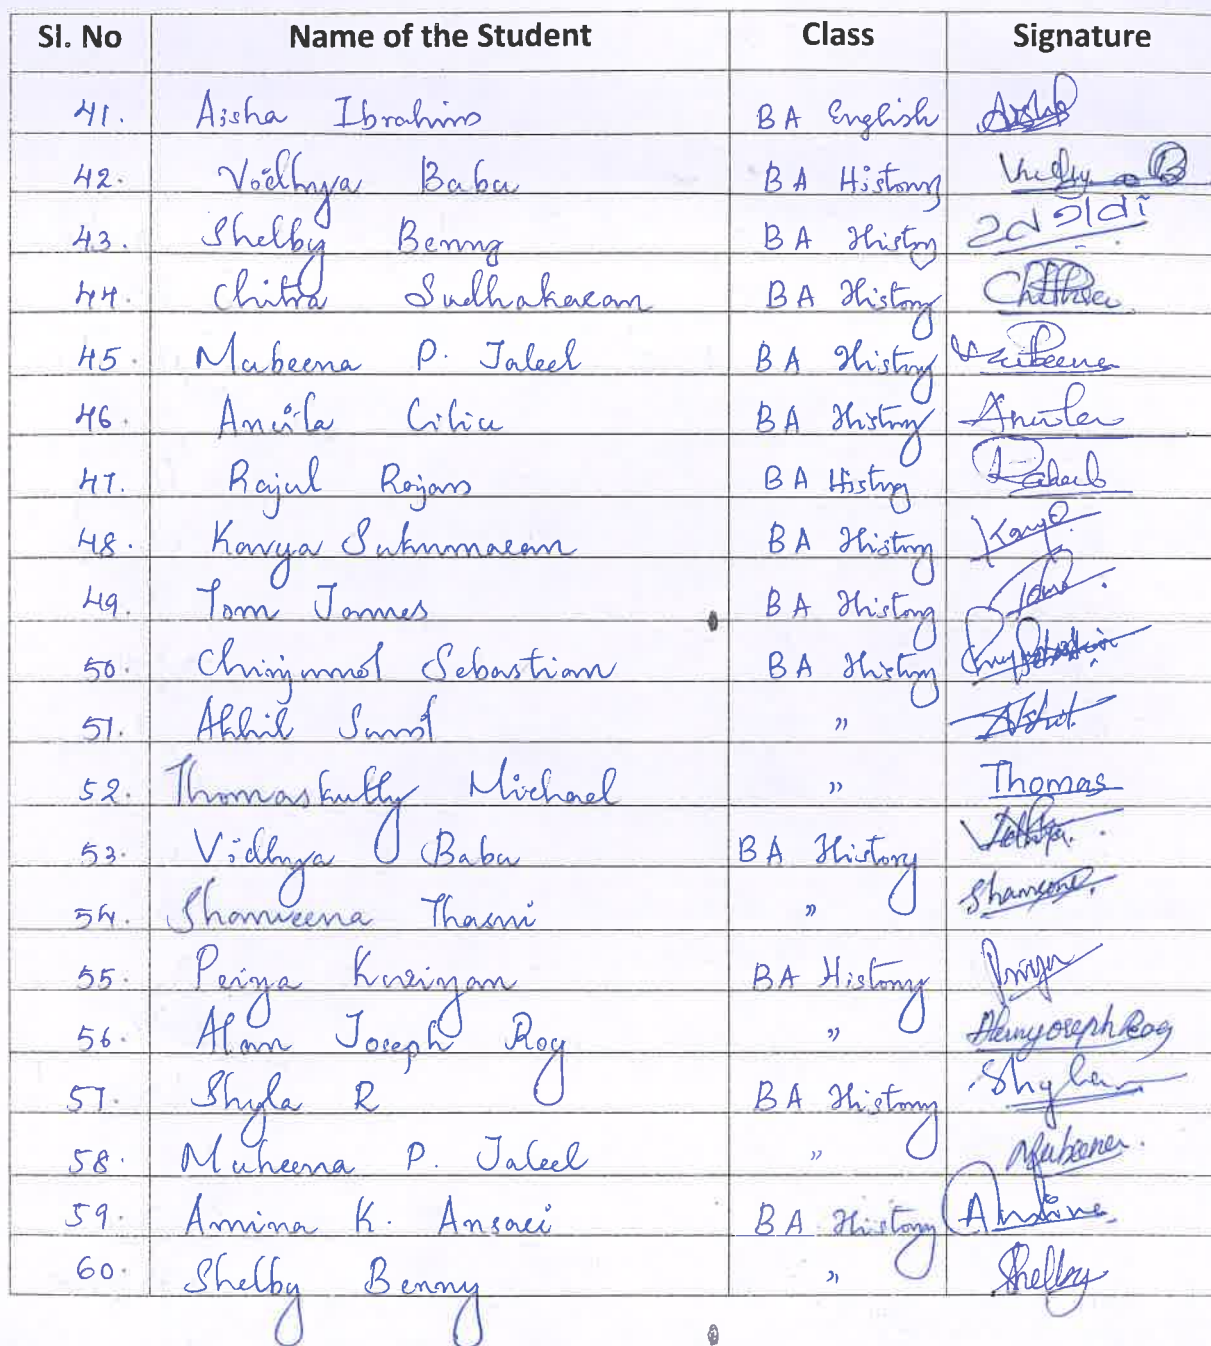 Sl. No Name of the Student Class Signature
41. Aisha Ibrahim BA English Aisha
42. Vidhya Babu BA History Vidhya B
43. Shelby Benny BA History
44. Chitra Sudhakaran BA History Chithra
45. Mubeena P. Jaleel BA History Mubeena
46. Anila BA History Anila
47. Rajul Rajan BA History
48. Kavya Sukumaran BA History Kavya
49. Tom James BA History Tom
50. Chinjumol Sebastian BA History
51. Akhil Sunil "
52. Thomaskutty Michael " Thomas
53. Vidhya Babu BA History Vidhya
54. Shameena Thasni "
55. Periya Kuriyan BA History Priya
56. Alan Joseph Roy " Alanjoseph Roy
57. Shyla R BA History Shyla
58. Mubeena P. Jaleel " Mubeena
59. Amina K. Ansari BA History Amina
60. Shelby Benny " Shelby